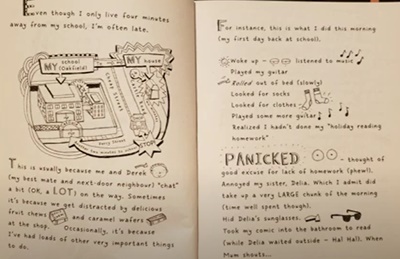 Even though I only live four minutes
away from my school, I'm often late.
MY school
(Oakfield)
MY house
STOP
This is usually because me and Derek
(my best mate and next-door neighbour) "chat"
a bit (OK, a LOT) on the way. Sometimes
it's because we get distracted by delicious
fruit chews and caramel wafers
at the shop. Occasionally, it's because
I've had loads of other very important things
to do.
For instance, this is what I did this morning
(my first day back at school).
Woke up - listened to music
Played my guitar
Rolled out of bed (slowly)
Looked for socks
Looked for clothes
Played some more guitar
Realized I hadn't done my "holiday reading
homework"
PANICKED - thought of
good excuse for lack of homework (phew!).
Annoyed my sister, Delia. Which I admit did
take up a very LARGE chunk of the morning
(time well spent though).
Hid Delia's sunglasses.
Took my comic into the bathroom to read
(while Delia waited outside - Ha! Ha!). When
Mum shouts...